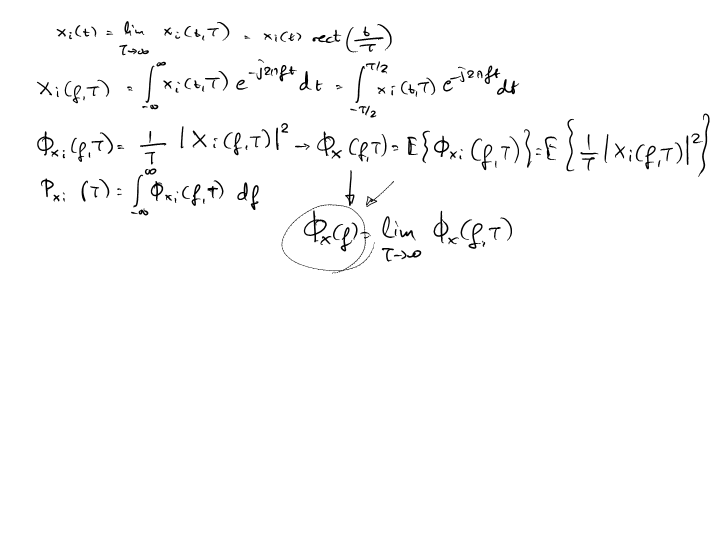 x_i(t) = lim_{T→∞} x_i(t,T) = x_i(t) rect(t/T)
X_i(f,T) = ∫_{-∞}^{∞} x_i(t,T) e^{-j2πft} dt = ∫_{-T/2}^{T/2} x_i(t,T) e^{-j2πft} dt
Φ_{x_i}(f,T) = 1/T |X_i(f,T)|² → Φ_x(f,T) = E{Φ_{x_i}(f,T)} = E{1/T |X_i(f,T)|²}
P_{x_i}(T) = ∫_{-∞}^{∞} Φ_{x_i}(f,T) df
Φ_x(f) = lim_{T→∞} Φ_x(f,T)